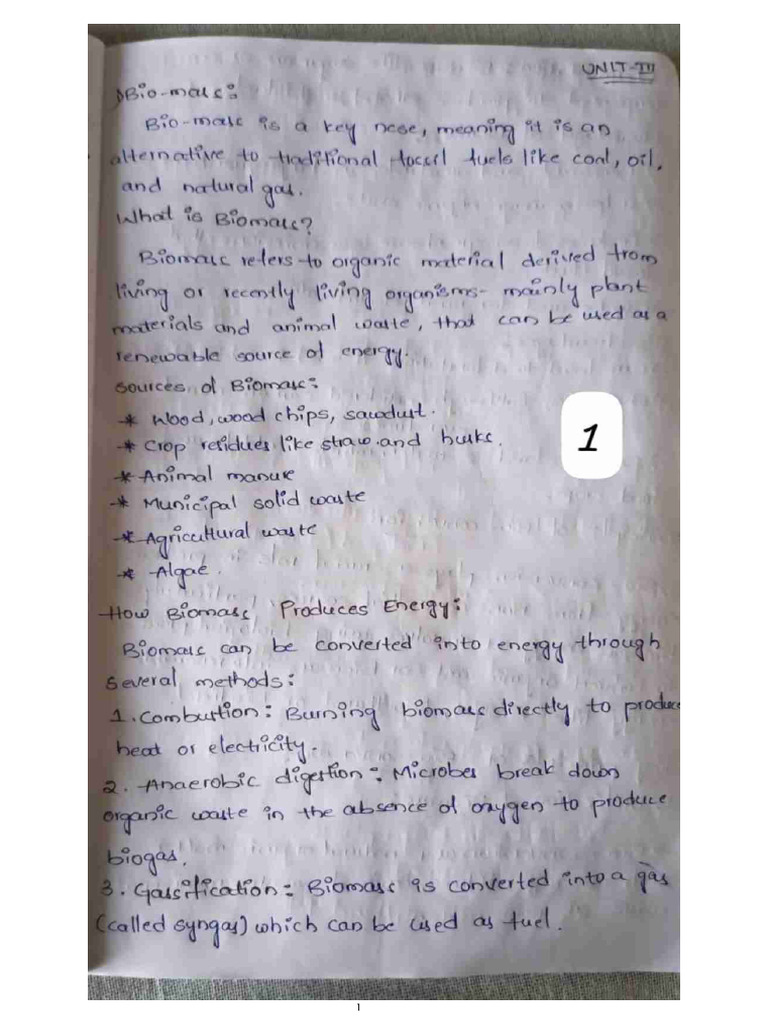 UNIT-III
1) Bio-mass:
Bio-mass is a key nese, meaning it is an
alternative to traditional fossil fuels like coal, oil,
and natural gas.
What is Biomass?
Biomass refers to organic material derived from
living or recently living organisms- mainly plant
materials and animal waste, that can be used as a
renewable source of energy.
Sources of Biomass:
* Wood, wood chips, sawdust.
* Crop residues like straw and husks.
* Animal manure
* Municipal solid waste
* Agricultural waste
* Algae.
1
How Biomass Produces Energy:
Biomass can be converted into energy through
several methods:
1. Combustion: Burning biomass directly to produce
heat or electricity.
2. Anaerobic digestion: Microbes break down
organic waste in the absence of oxygen to produce
biogas.
3. Gassification: Biomass is converted into a gas
(called syngas) which can be used as fuel.
1